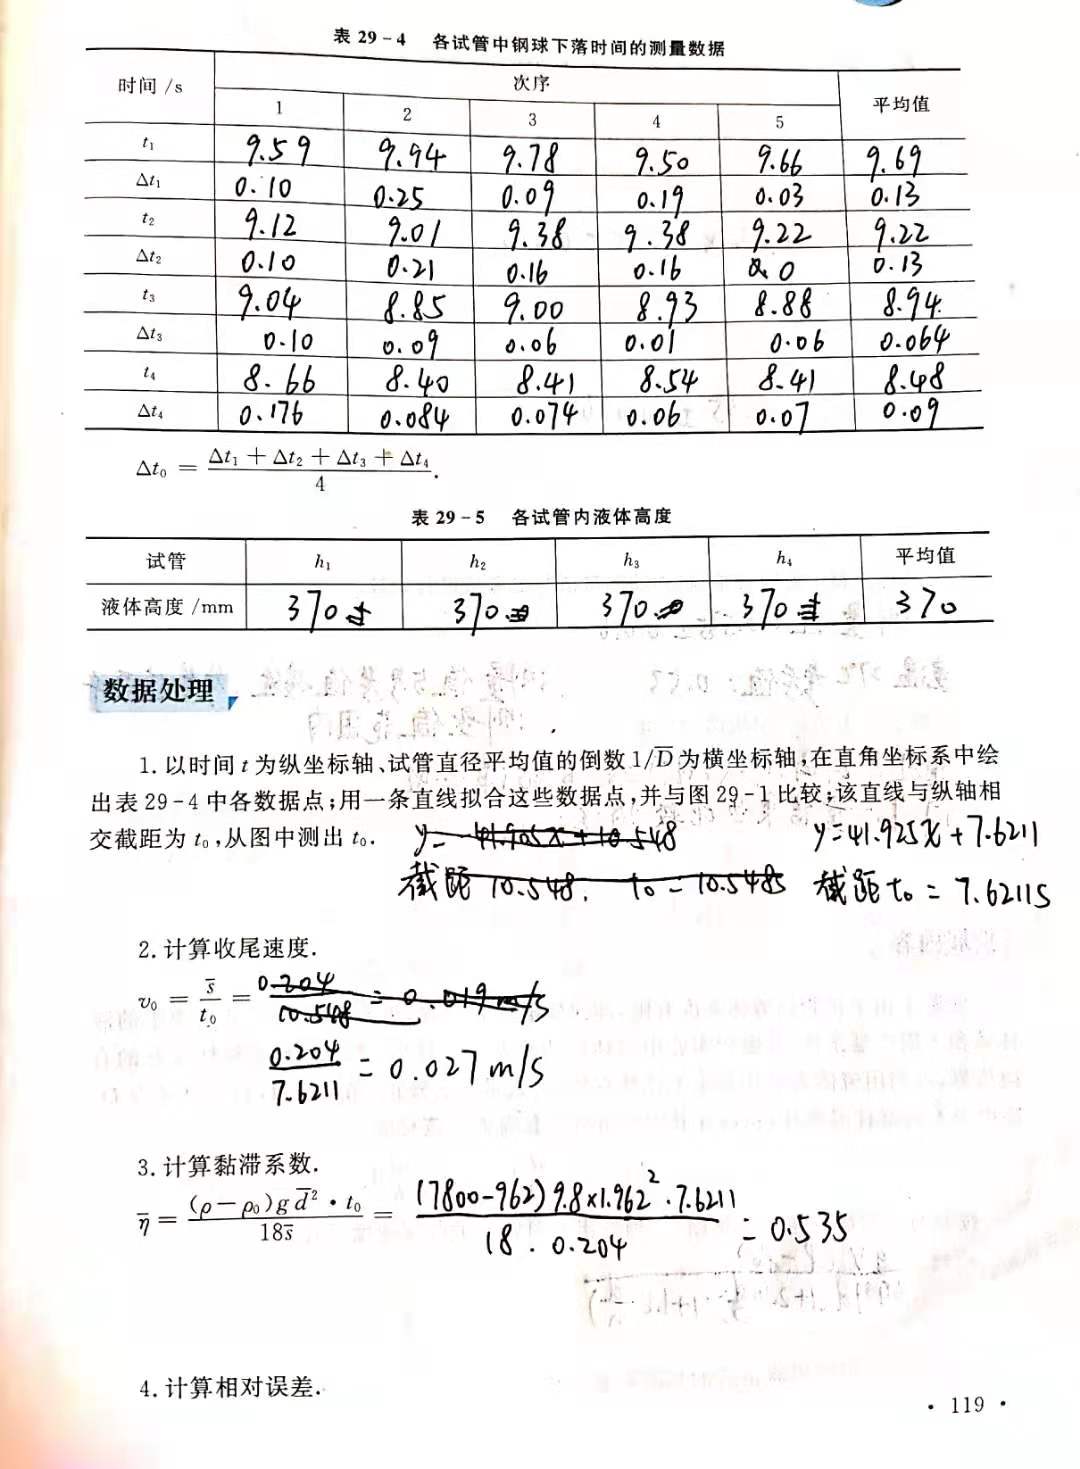 表 29-4 各试管中钢球下落时间的测量数据
时间 /s 次序 平均值
1 2 3 4 5
t₁ 9.59 9.94 9.78 9.50 9.66 9.69
Δt₁ 0.10 0.25 0.09 0.19 0.03 0.13
t₂ 9.12 9.01 9.38 9.38 9.22 9.22
Δt₂ 0.10 0.21 0.16 0.16 0 0.13
t₃ 9.04 8.85 9.00 8.93 8.88 8.94
Δt₃ 0.10 0.09 0.06 0.01 0.06 0.064
t₄ 8.66 8.40 8.41 8.54 8.41 8.48
Δt₄ 0.176 0.084 0.074 0.06 0.07 0.09
Δt₀ = (Δt₁ + Δt₂ + Δt₃ + Δt₄)/4.
表 29-5 各试管内液体高度
试管 h₁ h₂ h₃ h₄ 平均值
液体高度 /mm 370 370 370 370 370
数据处理
1. 以时间 t 为纵坐标轴、试管直径平均值的倒数 1/D̅ 为横坐标轴,在直角坐标系中绘
出表 29-4 中各数据点;用一条直线拟合这些数据点,并与图 29-1 比较;该直线与纵轴相
交截距为 t₀,从图中测出 t₀.
y=41.905x+10.548 y=41.925x+7.6211
截距 10.548. t₀=10.548s 截距 t₀=7.6211s
2. 计算收尾速度.
v₀ = s̅/t₀ = 0.204/10.548 = 0.019m/s
0.204/7.6211 = 0.027m/s
3. 计算黏滞系数.
η̅ = (ρ-ρ₀)g d̅²·t₀/18s̅ = (7800-962)9.8×1.962²·7.6211/18·0.204 = 0.535
4. 计算相对误差.
· 119 ·